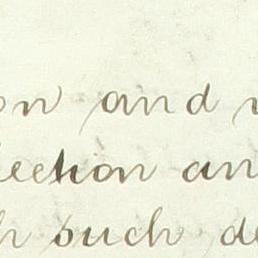 on and
ection an
h such de